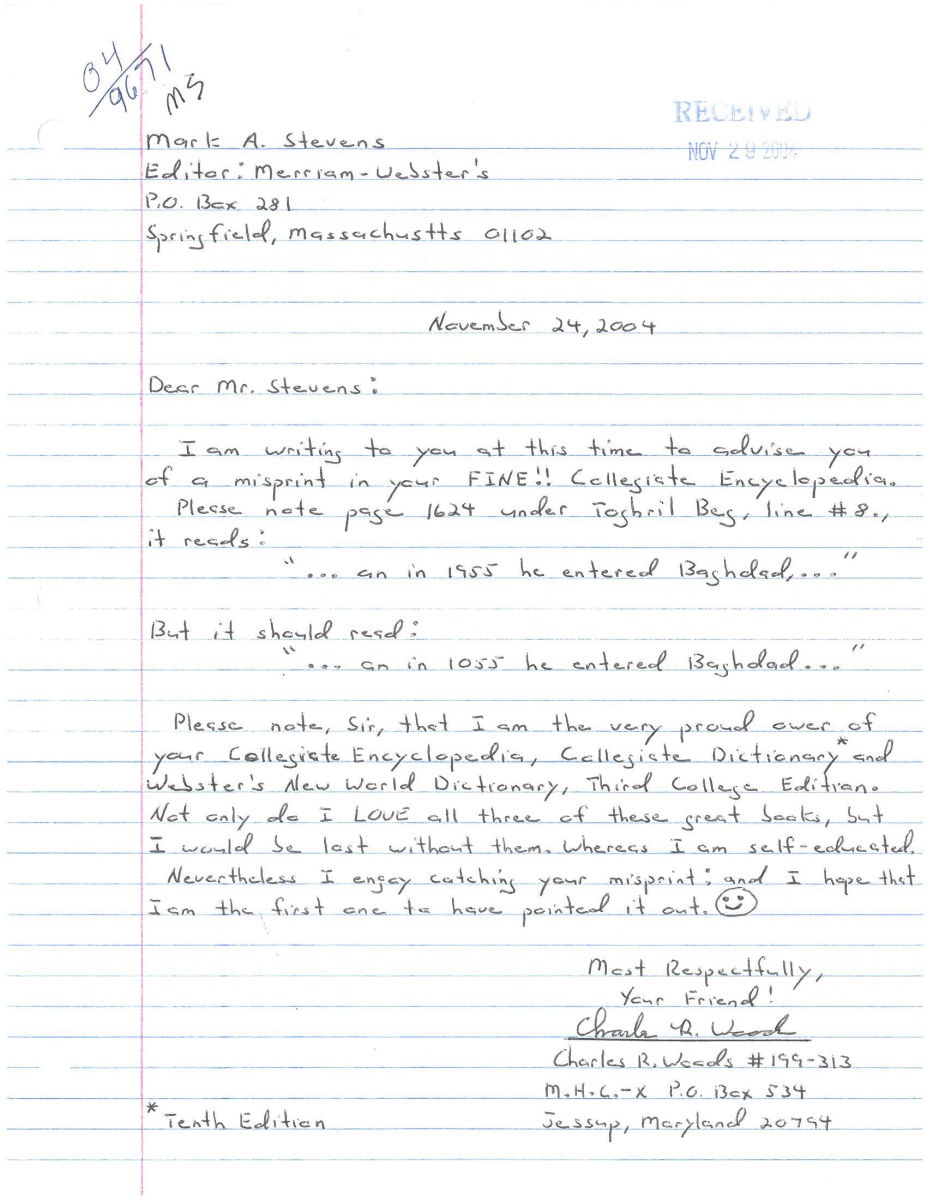 04/9671
MS
RECEIVED
NOV 29 2004
Mark A. Stevens
Editor: Merriam-Webster's
P.O. Box 281
Springfield, Massachustts 01102
November 24, 2004
Dear Mr. Stevens:
I am writing to you at this time to advise you
of a misprint in your FINE!! Collegiate Encyclopedia.
Please note page 1624 under Toghril Beg, line #8.,
it reads:
"... an in 1955 he entered Baghdad,..."
But it should read:
"... an in 1055 he entered Baghdad..."
Please note, Sir, that I am the very proud ower of
your Collegiate Encyclopedia, Collegiate Dictionary* and
Webster's New World Dictionary, Third College Edition.
Not only do I LOVE all three of these great books, but
I would be lost without them. Whereas I am self-educated.
Nevertheless I engoy catching your misprint: and I hope that
I am the first one to have pointed it out. ☺
Most Respectfully,
Your Friend!
Charles R. Woods
Charles R. Woods #199-313
M.H.C.-X P.O. Box 534
Jessup, Maryland 20794
* Tenth Edition